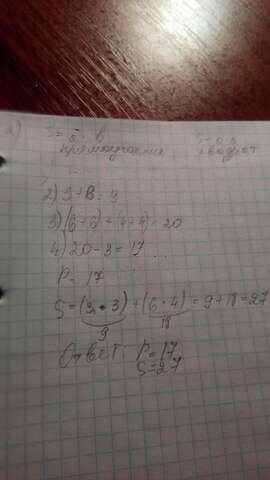 S = a · b
прямоугольник
S = a · a
квадрат
3) (6+6)+(4+4)=20
4) 20-3=17
P = 17
S=(3·3)+(6·4)=9+18=27
9
18
Ответ: P=17
S=27